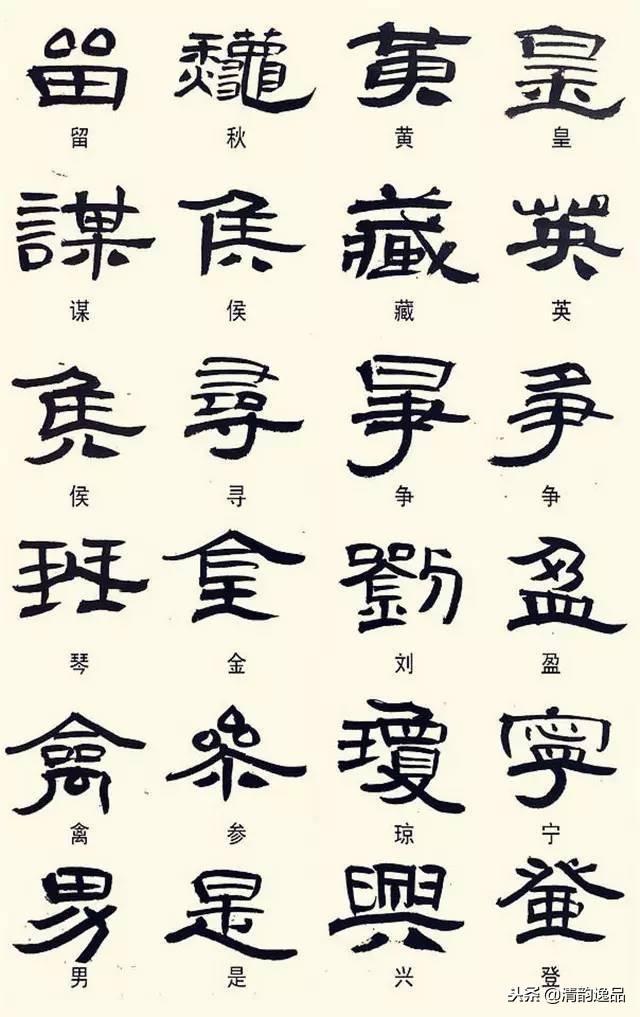 留 龝 黄 皇
留 秋 黄 皇
謀 侯 藏 英
谋 侯 藏 英
侯 尋 爭 爭
侯 寻 争 争
金 劉 盈
琴 金 刘 盈
禽 参 瓊 寧
禽 参 琼 宁
男 是 興 登
男 是 兴 登
头条 @清韵逸品